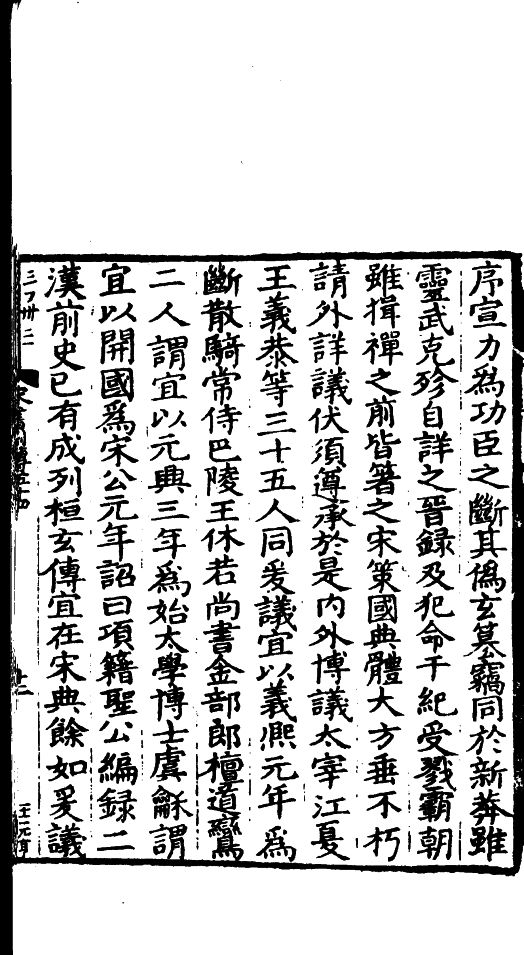 序宣力爲功臣之斷其僞玄篡竊同於新莽雖
靈武克殄自詳之晉録及犯命干紀受戮霸朝
雖揖禪之前皆著之宋策國典體大方垂不朽
請外詳議伏須遵承於是内外博議太宰江夏
王義恭等三十五人同爰議宜以義熙元年爲
斷散騎常侍巴陵王休若尚書金部郎檀道鸞
二人謂宜以元典三年爲始太學博士虞龢謂
宜以開國爲宋公元年詔曰項籍聖公編録二
漢前史已有成列桓玄傳宜在宋典餘如爰議
十二